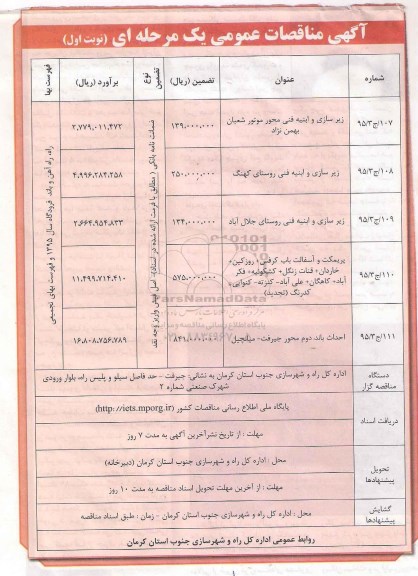 آگهی مناقصات عمومی یک مرحله ای (نوبت اول)
شماره
عنوان
تضمین (ریال)
نوع تضمین
برآورد (ریال)
فهرست بها
۹۵/۳/ج/۱۰۷
زیر سازی و ابنیه فنی محور موتور شعبان
بهمن نژاد
۱۳۹،۰۰۰،۰۰۰
۲،۷۷۹،۰۱۱،۴۷۲
۹۵/۳/ج/۱۰۸
زیر سازی و ابنیه فنی روستای کهنگ
۲۵۰،۰۰۰،۰۰۰
۴،۹۹۶،۲۸۴،۲۵۸
۹۵/۳/ج/۱۰۹
زیر سازی و ابنیه فنی روستای جلال آباد
۱۳۴،۰۰۰،۰۰۰
۲،۶۶۴،۹۵۴،۸۳۳
۹۵/۳/ج/۱۱۰
پریمکت و آسفالت باب گرفتی+ روزکین+
خاردان+ قنات زنگل+ کشکوئیه+ فکر
آباد+ کاهگان+ علی آباد- کنزته- کنوایی-
کدرنگ (تجدید)
۵۷۵،۰۰۰،۰۰۰
۱۱،۴۹۹،۷۱۴،۴۱۰
۹۵/۳/ج/۱۱۱
احداث باند دوم محور جیرفت- میانچیل
۸۴۱،۰۰۰،۰۰۰
۱۶،۸۰۸،۷۵۶،۷۸۹
ضمانت نامه بانکی (مطابق با فرمت ارائه شده در اسناد)- اصل فیش واریز وجه نقد
راه، راه آهن و باند فرودگاه سال ۱۳۹۵ و فهرست بهای تجمیعی
ParsNamadData
دستگاه
مناقصه گزار
اداره کل راه و شهرسازی جنوب استان کرمان به نشانی: جیرفت - حد فاصل سیلو و پلیس راه، بلوار ورودی
شهرک صنعتی شماره ۲
دریافت اسناد
پایگاه ملی اطلاع رسانی مناقصات کشور (http://iets.mporg.ir)
مهلت : از تاریخ نشرآخرین آگهی به مدت ۷ روز
تحویل
پیشنهادها
محل : اداره کل راه و شهرسازی جنوب استان کرمان (دبیرخانه)
مهلت : از آخرین مهلت تحویل اسناد مناقصه به مدت ۱۰ روز
گشایش
پیشنهادها
محل : اداره کل راه و شهرسازی جنوب استان کرمان - زمان : طبق اسناد مناقصه
روابط عمومی اداره کل راه و شهرسازی جنوب استان کرمان